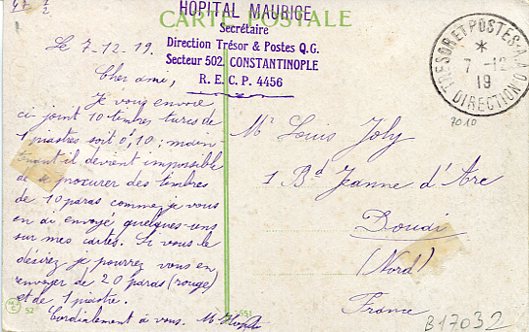 CARTE POSTALE
HOPITAL MAURICE
Secrétaire
Direction Trésor & Postes Q.G.
Secteur 502, CONSTANTINOPLE
R. E. C. P. 4456
TRESOR ET POSTES
*
7 - 12
19
DIRECTION
7010
Le 7-12.19.
Cher ami,
Je vous envoie
ci joint 10 timbres turcs de
1 piastres soit 0,10; main
tenant il devient impossible
de procurer des timbres
de 10 paras comme je vous
en ai envoyé quelques-uns
sur mes cartes. Si vous le
désirez je pourrez vous en
envoyer de 20 paras (rouge)
et de 1 piastre.
Cordialement à vous.
Mr Louis Joly
1 Bd Jeanne d'Arc
Douai
(Nord)
France
52
551
B17032